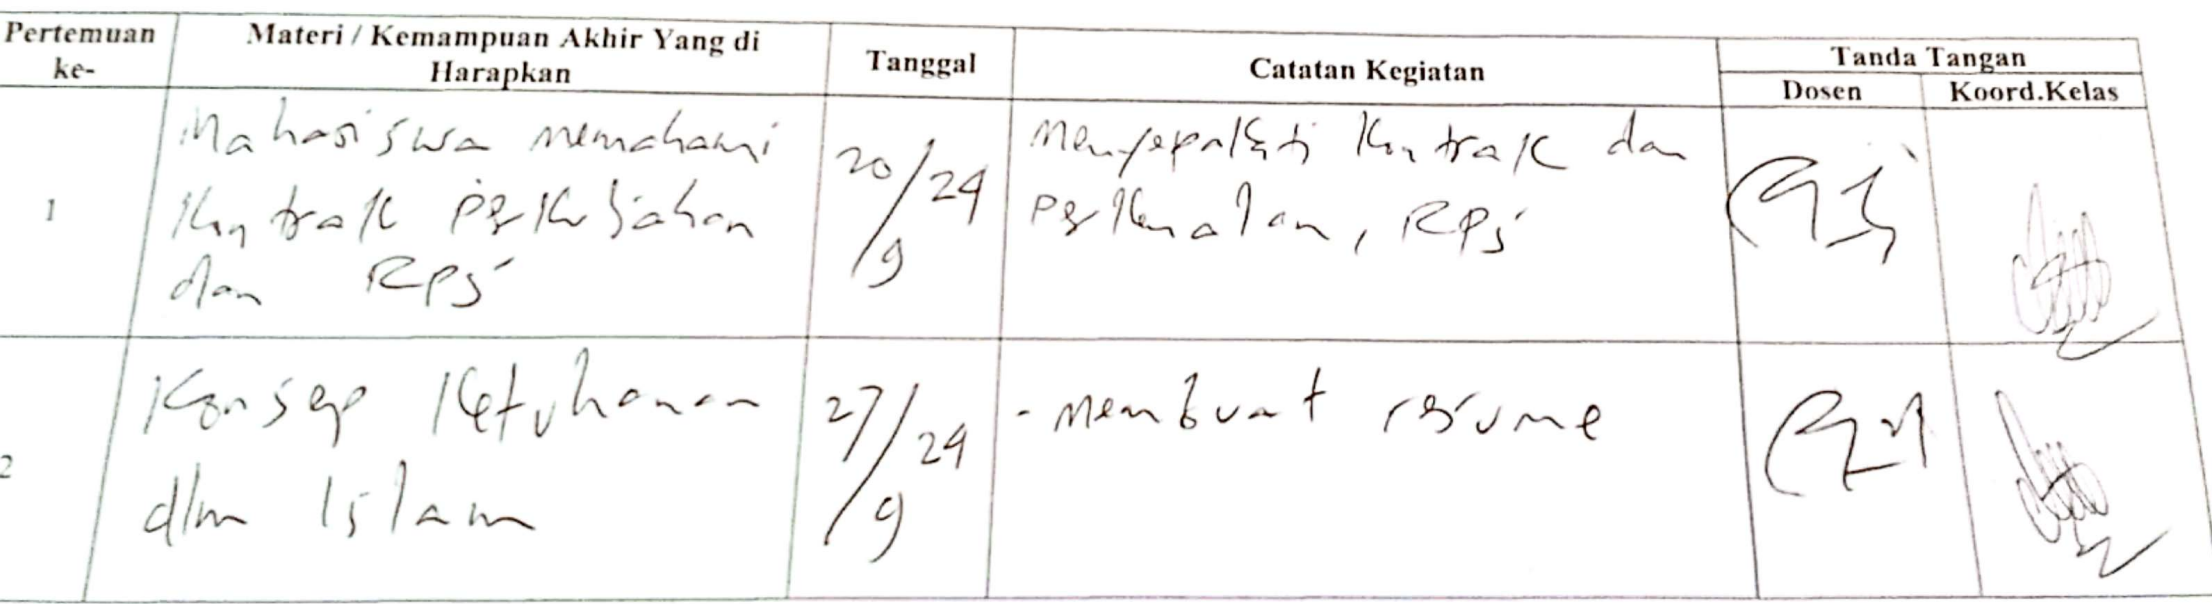 Pertemuan ke-
Materi / Kemampuan Akhir Yang di Harapkan
Tanggal
Catatan Kegiatan
Tanda Tangan
Dosen
Koord.Kelas
1
Mahasiswa memahami
Kontrak perkuliahan
dan RPS
20/9/24
Menyepakati kontrak dan
perkenalan, RPS
2
Konsep Ketuhanan
dlm Islam
27/9/24
- membuat resume